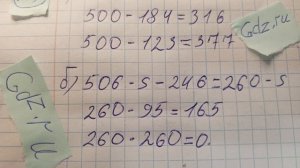 500 - 184 = 316
500 - 123 = 377
б) 506 - s - 246 = 260 - s
260 - 95 = 165
260 - 260 = 0.
Gdz.ru
Gdz.ru